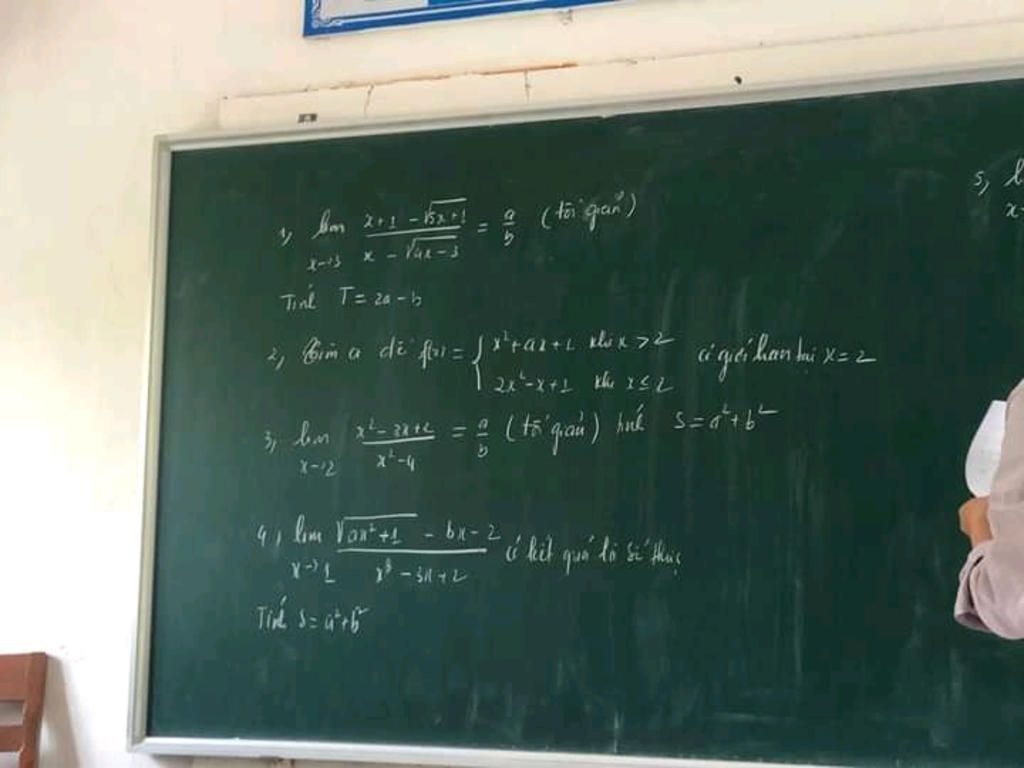 1, lim x→3 (x+1 - √(5x+1)) / (x - √(4x-3)) = a/b (tối giản)
Tính T = 2a - b
2, Tìm a để f(x) = { x²+ax+1 khi x > 2 có giới hạn tại x = 2
2x²-x+1 khi x ≤ 2
3, lim x→2 (x²-3x+2) / (x²-4) = a/b (tối giản) tính S = a²+b²
4, lim x→1 (√(ax²+1) - bx - 2) / (x³ - 3x + 2) có kết quả là số thực
Tính S = a²+b²
5, l
x→